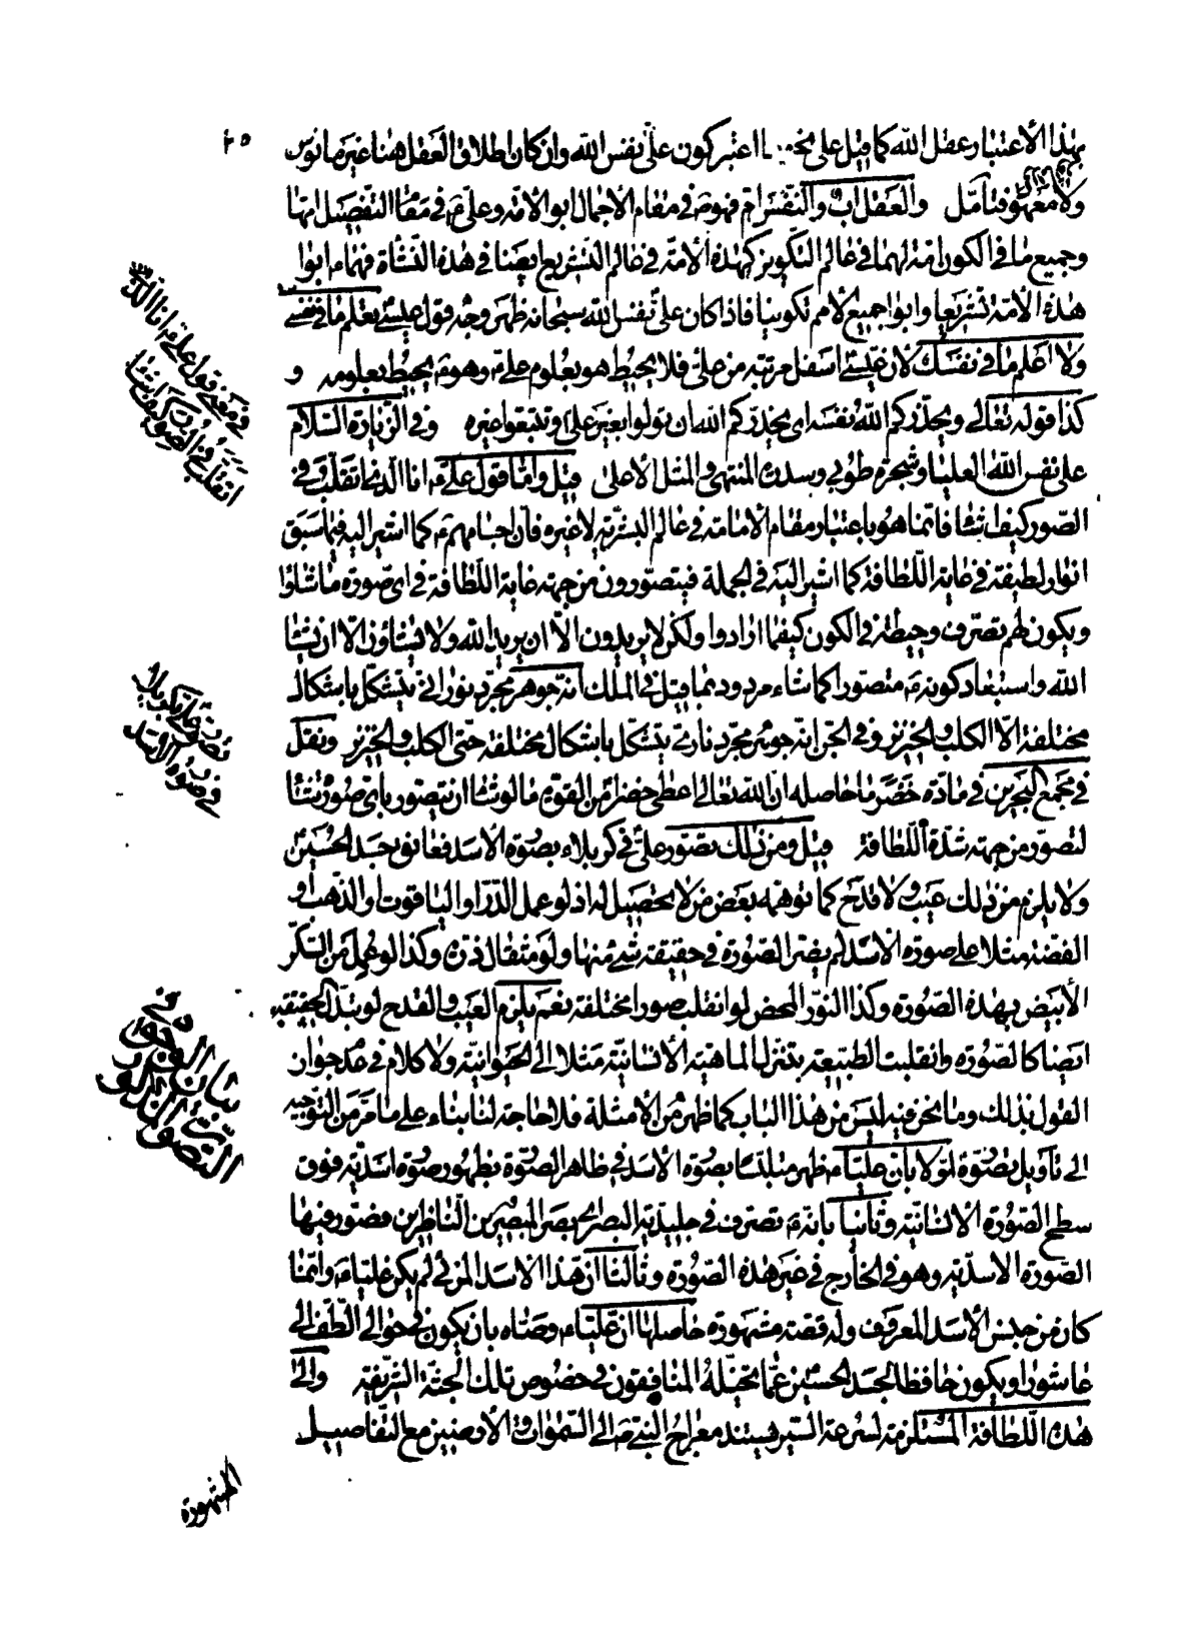 ٢٥
بهذا الأعتبار عقل الله كما قيل على اعتبر كون علىّ نفس الله وان كان اطلاق العقل هنا غير مانوس
ولا معهود فتأمّل والعقل ابٌ والنّفس امّ فهو ص في مقام الأجمال ابو الأمّة وعلىّ ع في مقام التفصيل امّها
وجميع ما في الكون امّة لهما في عالم التكوين كهذه الأمّة في عالم التشريع ايضا في هذه النّشأة فهما ع ابوا
هذه الأمّة تشريعا وابوا جميع الأمم تكوينا فاذا كان علىّ نفس الله سبحانه ظهر وجه قول عيسى تعلم ما في نفسى
ولا اعلم ما في نفسك لأن عيسى اسفل مرتبة من علىّ فلا يحيط هو بعلوم علىّ ع وهو ع يحيط بعلومه و
كذا قوله تعالى ويحذّركم الله نفسه اى يحذّركم الله ان تولوا بغير علىّ وتتبعوا غيره وفي الزّيارة السّلام
على نفس الله العليا وشجرة طوبى وسدرة المنتهى والمثل الأعلى قيل وامّا قول علىّ ع انا الّذى اتقلّب في
الصّور كيف اشاء فانّما هو باعتبار مقام الأمامة في عالم البشريّة لا غيره فانّ اجسامهم ع كما اشير اليه فيما سبق
انوار لطيفة في غاية اللّطافة كما اشير اليه في الجملة فيتصوّرون من جهة غاية اللّطافة في اىّ صورة ما شاؤا
ويكون لهم تصرّف وحيطة في الكون كيفما ارادوا ولكن لا يريدون الّا ان يريد الله ولا يشاؤن الّا ان يشاء
الله واستبعاد كونه ع متصوّرا كما شاء مردود بما قيل في الملك انّه جوهر مجرّد نورانىّ يتشكّل باشكال
مختلفة الّا الكلب والخنزير وفي الجنّ انّه جوهر مجرّد نارىّ يتشكّل باشكال مختلفة حتّى الكلب والخنزير ونقل
في مجمع البحرين في مادّة خضر ما حاصله انّ الله تعالى اعطى خضرا من القوّة ما لو شاء ان يتصور باىّ صورة شاء
لتصوّر من جهة شدّة اللّطافة قيل ومن ذلك تصوّر علىّ في كربلاء بصورة الأسد فعانق جسد الحسين
ولا يلزم من ذلك عيب ولا قدح كما توهّمه بعض من لا تحصيل له اذ لو عمل الدّرّ او الياقوت او الذّهب او
الفضّة مثلا على صورة الأسد لم يضرّ الصّورة في حقيقة شىء منها ولو مثقال ذرّة وكذا لو عمل من السّكّر
الأبيض بهذه الصّورة وكذا النّور المحض لو انقلب صورا مختلفة نعم يلزم العيب والقدح لو تبدّل الحقيقة
ايضا كالصّورة وانقلبت الطبيعة بتنزّل الماهيّة الأنسانيّة مثلا الى الحيوانيّة ولا كلام في عدم جواز
القول بذلك وما نحن فيه ليس من هذا الباب كما ظهر من الأمثلة فلا حاجة لنا بناء على ما مرّ من التوجيه
الى تأويل تصوّره اوّلا بانّ عليّا ع ظهر متلبّسا بصورة الأسد في ظاهر الصّورة بظهور صورة اسديّة فوق
سطح الصّورة الأنسانيّة وثانيا بانّه ع تصرّف في جليديّة البصر اى بصر المبصرين الناظرين فصوّر فيها
الصّورة الأسديّة وهو في الخارج في غير هذه الصّورة وثالثا انّ هذا الأسد المرئى لم يكن عليّا ع وانّما
كان من جنس الأسد المعروف وله قصّة مشهورة حاصلها انّ عليّا ع وصّاه بان يكون في حوالى الطّفّ الى
عاشورا ويكون حافظا لجسد الحسين عمّا تخيّله المنافقون في خصوص تلك الجثّة الشّريفة والى
هذه اللّطافة المستلزمة لسرعة السّير يستند معراج النّبى ص الى السّموات والأرضين مع التّفاصيل
المشهورة
في معنى قول على ع انا الّذى
اتقلّب في الصور كيف اشاء
تصوّر على بكربلاء
في صورة الأسد
في
بيان الوجوه
التصوّر المذكور